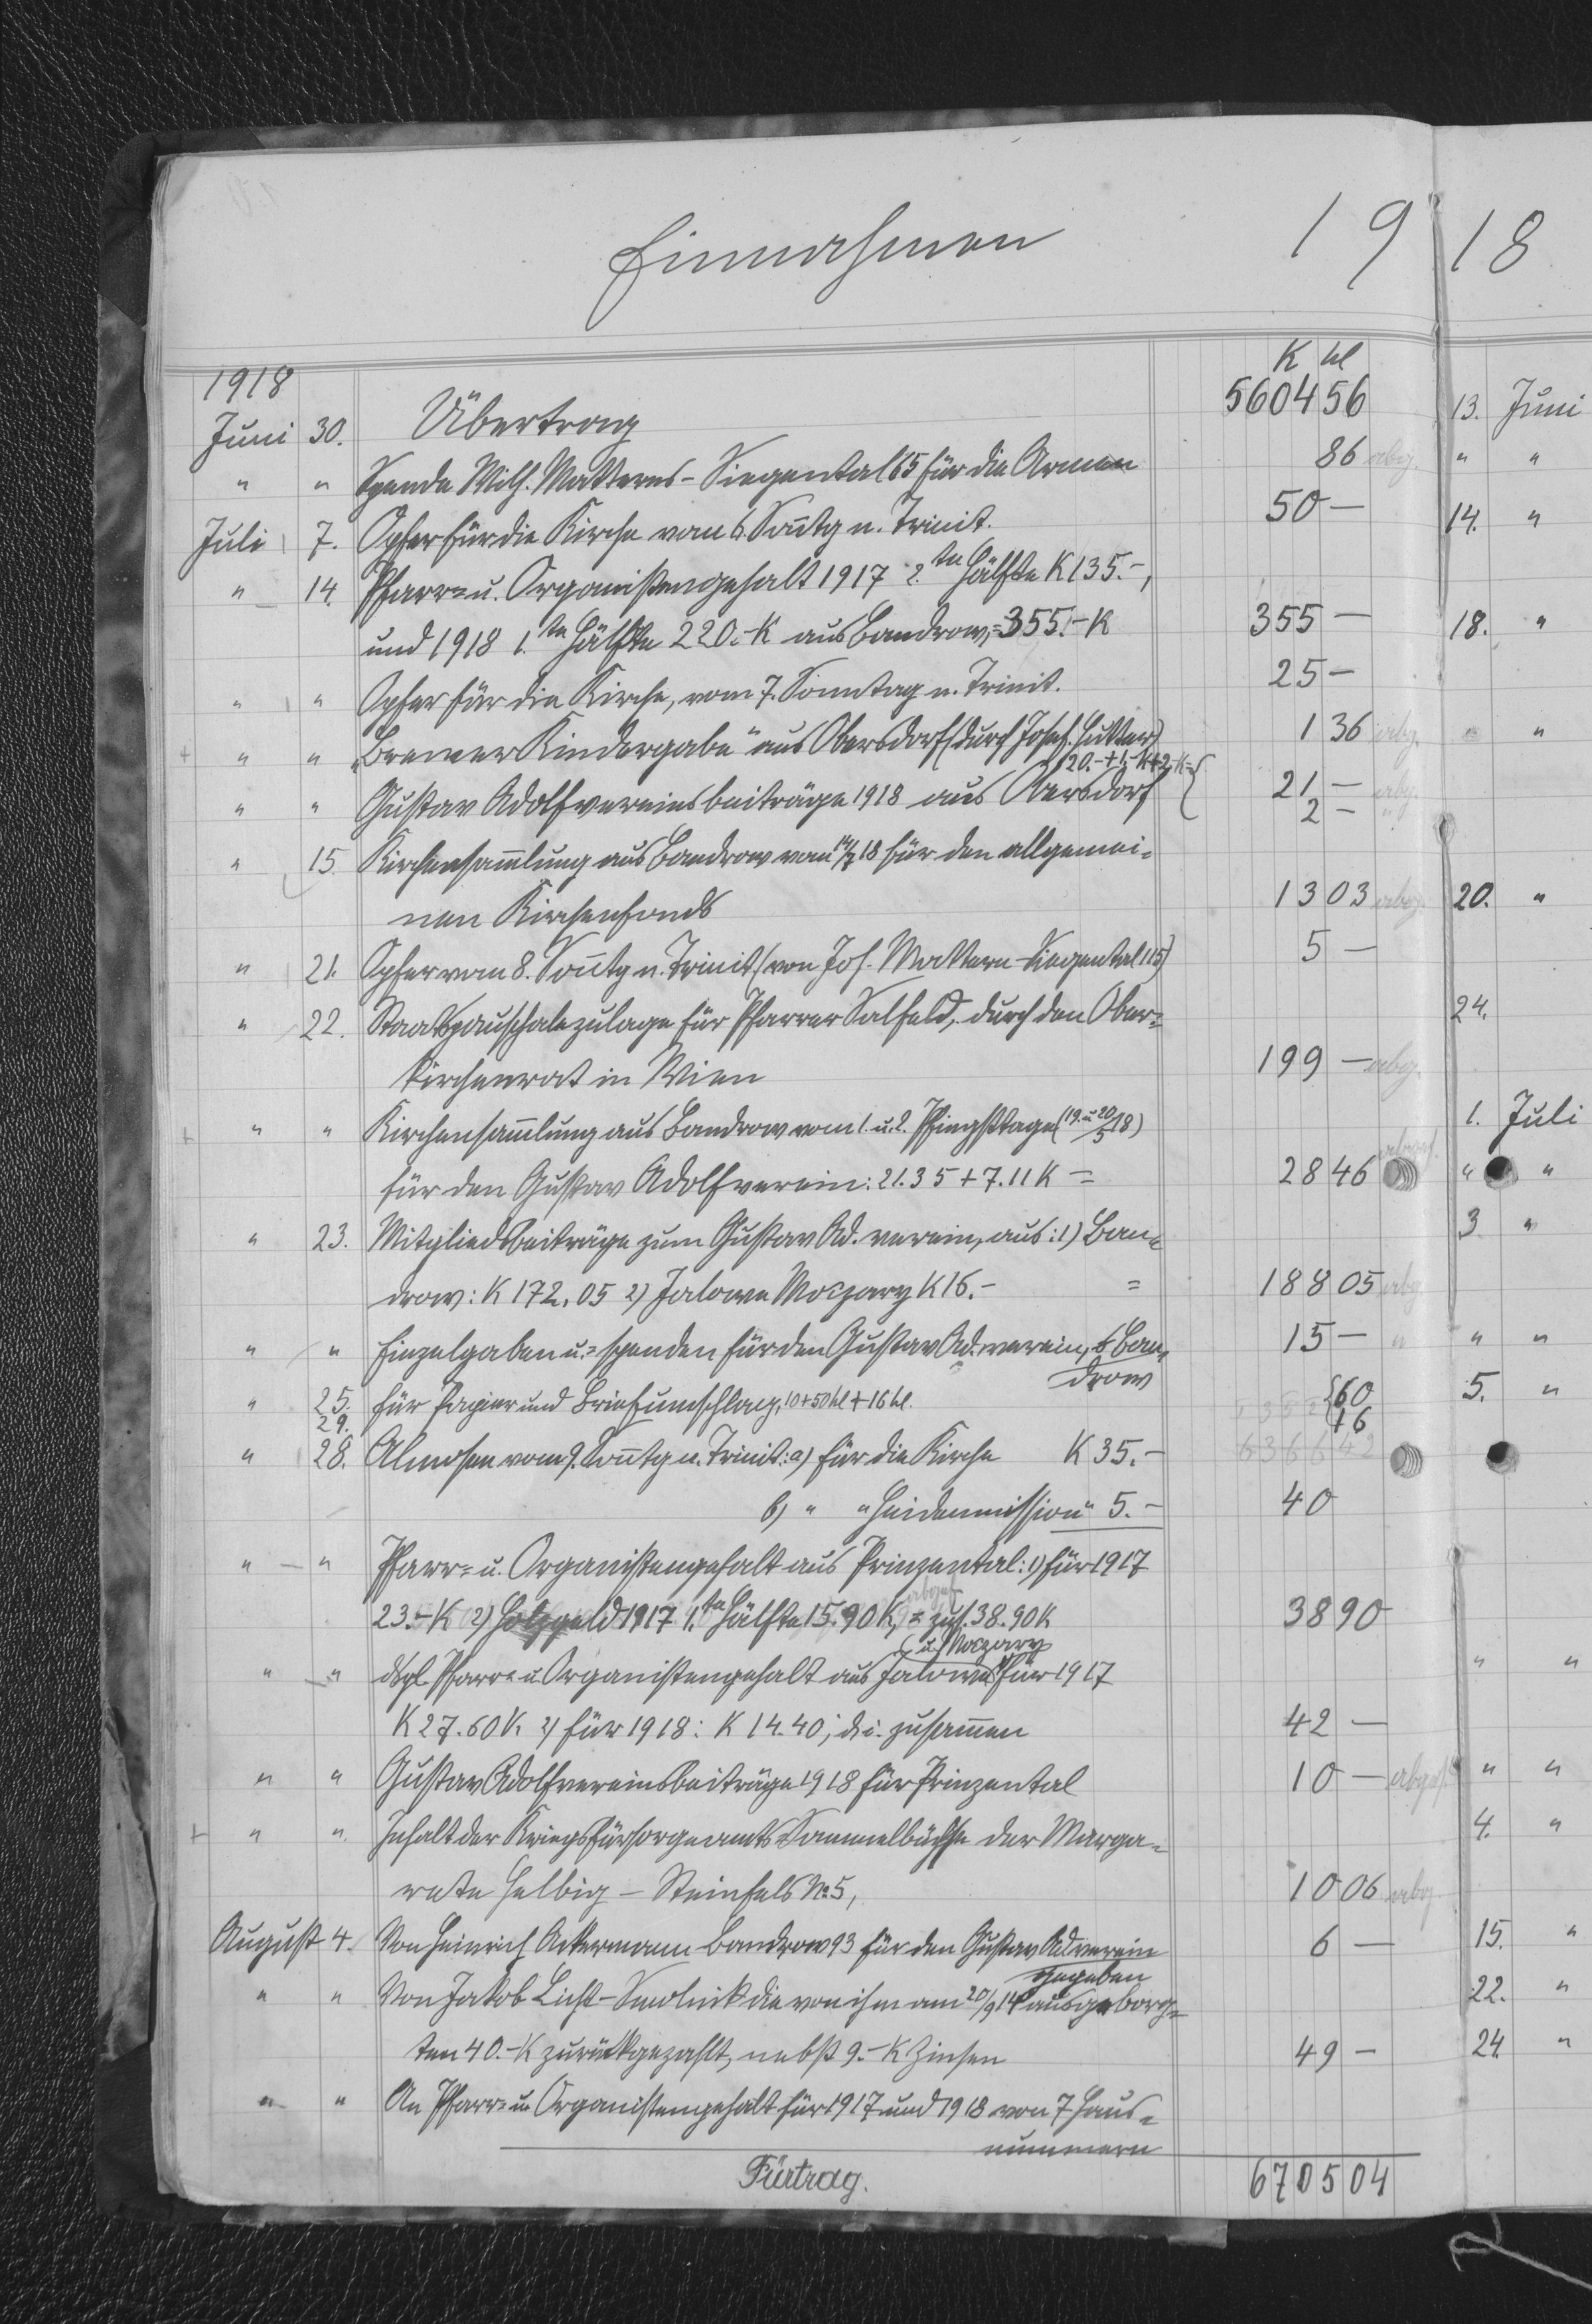 Einnahmen 1918
K hl
1918
Juni 30. Übertrag 5604 56
" " Spende Wilh. Matterns - Siegental 65 für die Armen 86 abg.
Juli 7. Opfer für die Kirche vom 6. Sontg n. Trinit. 50 —
" 14. Pfarr= u. Organistengehalt 1917 2.ten Hälfte K 135.-,
und 1918 1.ten Hälfte 220.-K aus Bandrow, = 355.-K 355 —
" " Opfer für die Kirche, vom 7. Sonntag n. Trinit. 25 —
+ " " "Bremer Kindergabe" aus Obersdorf (durch Josef Hutter) 1 36 abg.
20.-+1.-K+2.-K=
" " Gustav Adolfvereinsbeiträge 1918 aus Obersdorf { 21 — abg.
2 — "
" 15. Kirchensamlung aus Bandrow vom 14/7 18 für den allgemei=
nen Kirchenfonds 13 03 abg.
" 21. Opfer vom 8. Sontg n. Trinit (von Jos. Mattern - Siegental 115) 5 —
" 22. Staatspauschalezulage für Pfarrer Salfeld, durch den Ober=
kirchenrat in Wien 199 — abg.
+ " " Kirchensamlung aus Bandrow vom 1. u. 2. Pfingsttage (19. u 20/5 18)
für den Gustav Adolfverein: 21.35 + 7.11 K = 28 46
" 23. Mitgliedsbeiträge zum Gustav Ad. verein, aus: 1) Ban=
drow: K 172.05 2) Jalowe Moczary K 16.- = 188 05 abg
" " Einzelgaben u.= spenden für den Gustav Ad. verein, Ban= 15 — "
drow
" 25. für Papier und Briefumschlag, 10+50 hl + 16 hl. {60
29. +6
" 28. Almosen vom 9. Sontg n. Trinit: a) für die Kirche K 35.-
b) " " Heidenmission " 5.- 40
" — " Pfarr= u. Organistengehalt aus Prinzental: 1) für 1917
23.-K 2) Holzgeld 1917 1.ten Hälfte 15.90 K, = zus. 38.90 K 38 90
(u.) Moczary
" — " dsgl. Pfarr= u Organistengehalt aus Jalowe für 1917
K 27.60 K 2) für 1918: K 14.40; d. i. zusamen 42 —
" " Gustav Adolfvereinsbeiträge 1918 für Prinzental 10 —
+ " " Inhalt der Kriegsfürsorgeamts Sammelbüchse der Marga=
rete Helbig - Steinfels No 5, 10 06 abg
August 4. Von Heinrich Ackermann Bandrow 93 für den Gustav Adverein 6 —
gegeben
" " Von Jakob Licht - Smolnik die von ihm am 20/9 14 ausgeborg=
ten 40.-K zurückgezahlt, nebst 9.-K Zinsen 49 —
" " An Pfarr= u Organistengehalt für 1917 und 1918 von 7 Haus=
nummern
Fürtrag. 6705 04
13. Juni
" "
14. "
18. "
"
20. "
24.
1. Juli
" "
3 "
" "
5. "
" "
" "
4. "
15. "
22. "
24. "